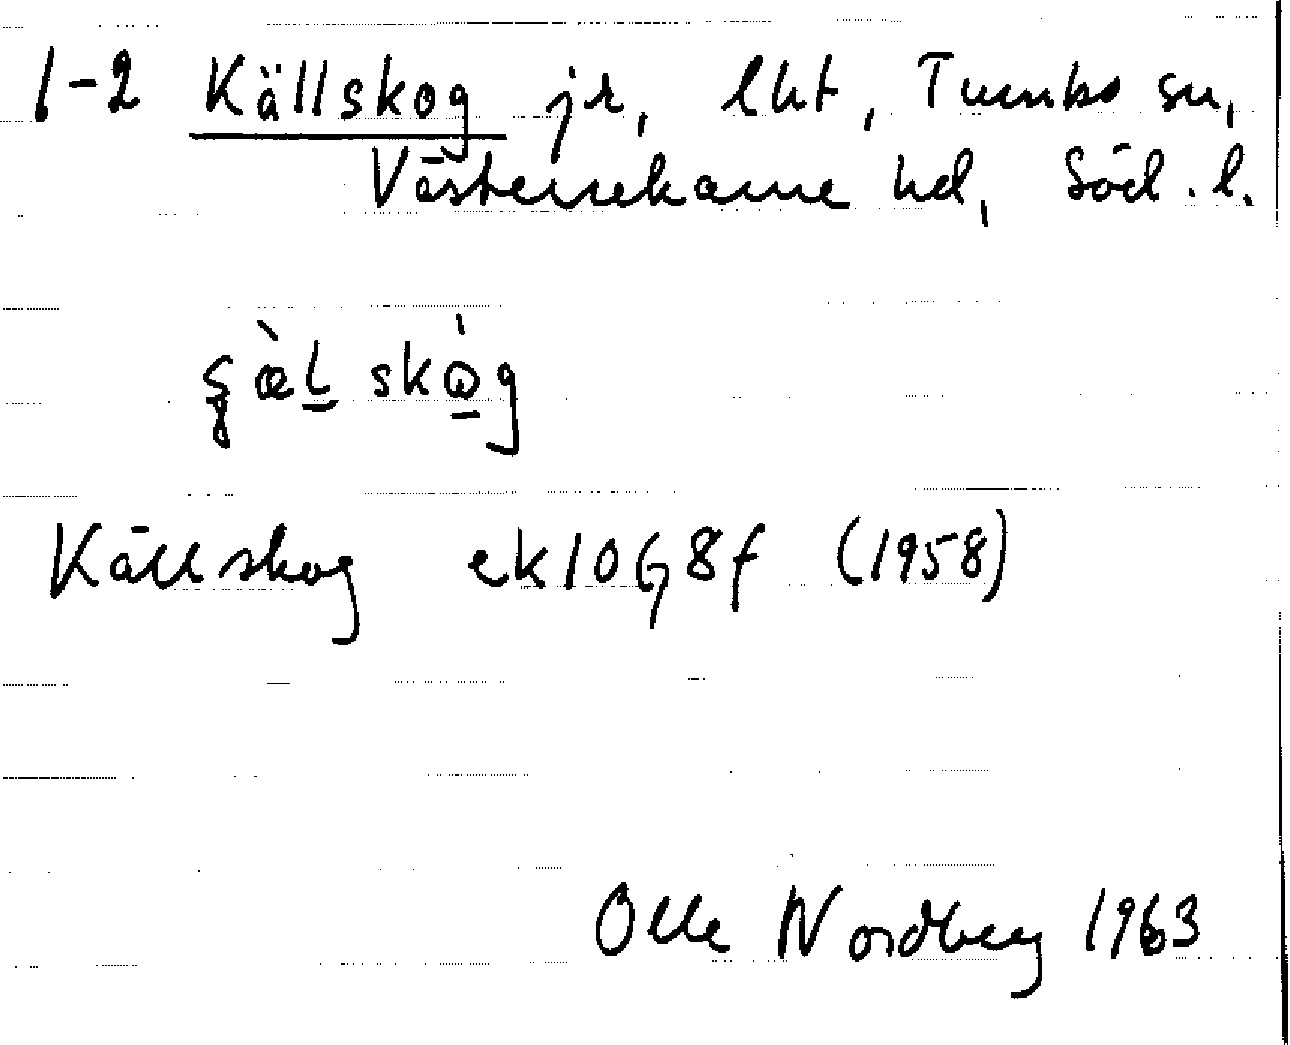 1-2 Källskog jr, lht, Tumbo sn,
Västerrekarne hd, Söd. l.
Källskog ek 10G8f (1958)
Olle Nordberg 1963